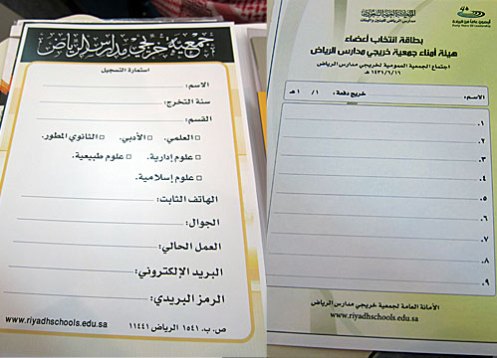 جمعية خريجي مدارس الرياض
استمارة التسجيل
الاسم:
سنة التخرج:
القسم:
العلمي. الأدبي. الثانوي المطور.
علوم إدارية. علوم طبيعية.
علوم إسلامية.
الهاتف الثابت:
الجوال:
العمل الحالي:
البريد الإلكتروني:
الرمز البريدي:
ص. ب. ١٥٤١ الرياض ١١٤٤١
www.riyadhschools.edu.sa
بطاقة انتخاب أعضاء
هيئة أمناء جمعية خريجي مدارس الرياض
اجتماع الجمعية العمومية لخريجي مدارس الرياض
١٤٣١/٦/١٦ هـ
الاسم: خريج دفعة: / ١ ١ هـ
١.
٢.
٣.
٤.
٥.
٦.
٧.
٨.
٩.
الأمانة العامة لجمعية خريجي مدارس الرياض
www.riyadhschools.edu.sa